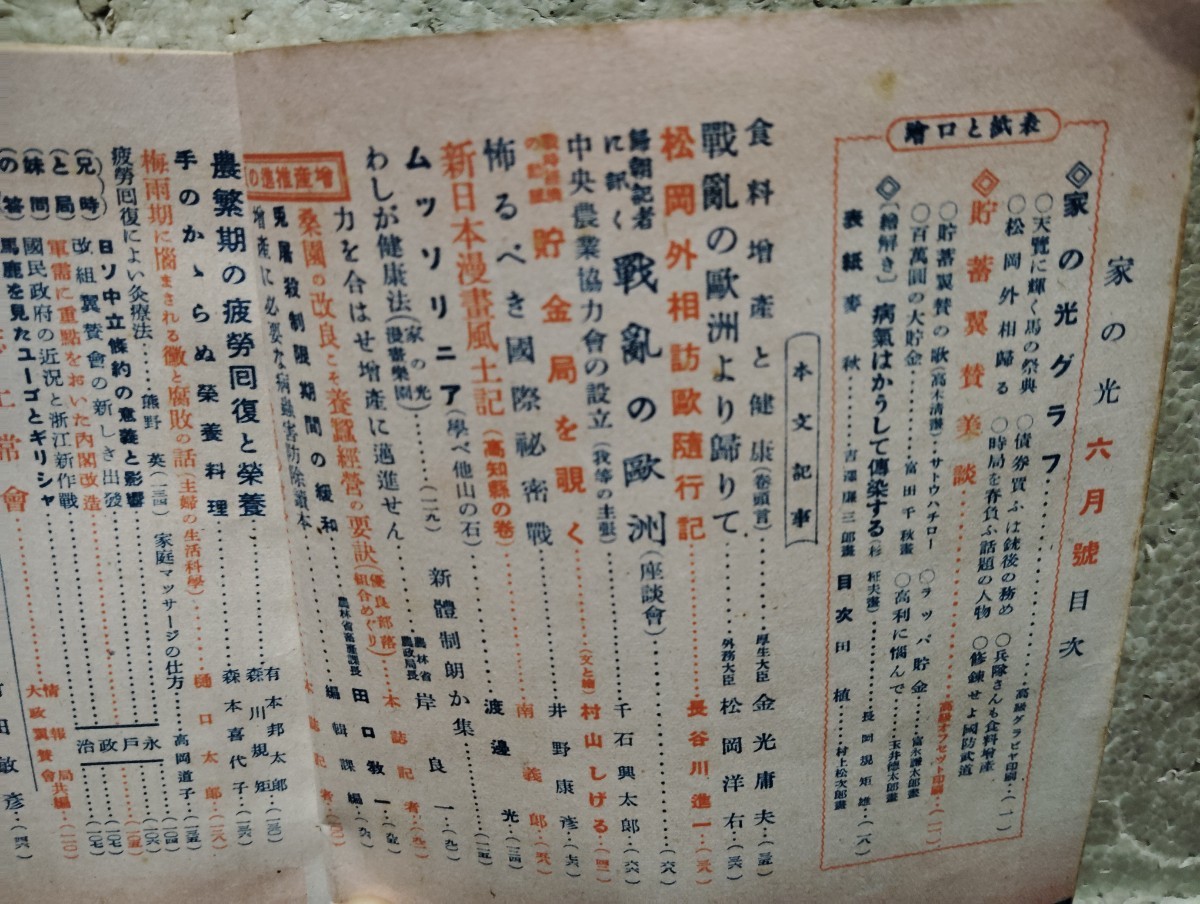 家の光六月號目次
表紙と口繪
◇家の光グラフ………高級グラビヤ印刷…(一)
○天覽に輝く馬の祭典 ○債券買ふは銃後の務め ○兵隊さんも食料增產
○松岡外相歸る ○時局を背負ふ話題の人物 ○修鍊せよ國防武道
◇貯蓄翼賛美談………高級オフセット印刷…(一一)
○貯蓄翼賛の歌(高木淸讃)…サトウハチロー ○ラッパ貯金…富永謙太郎畫
○百萬圓の大貯金…富田千秋畫 ○高利に惱んで…玉井德太郎畫
◇(繪解き)病氣はかうして傳染する(杉 柾夫畫)…長岡規矩雄…(一八)
表紙 麥秋…吉澤廉三郎畫 目次 田植…村上松次郎畫
本文記事
食料增產と健康(卷頭言)…厚生大臣 金光庸夫…(三五)
戰亂の歐洲より歸りて…外務大臣 松岡洋右…(三六)
松岡外相訪歐隨行記…長谷川進一…(三九)
歸朝記者に訊く 戰亂の歐洲(座談會)…(六八)
中央農業協力會の設立(我等の主張)…千石興太郎…(六六)
貯金局を覗く(文と繪)村山しげる…(四二)
怖るべき國際祕密戰…井野康彥…(七六)
新日本漫畫風土記(高知縣の卷)…南義郎…
ムッソリニア(學べ他山の石)…渡邊光…(三四)
わしが健康法(漫畫樂園)(家の光)…(一一九) 新體制朗か集…(一一五)
力を合はせ增產に邁進せん…農林省農政局長 岸良一…(九一)
增產推進の
桑園の改良こそ養蠶經營の要訣(優良部落組合めぐり)…本誌記者…(九二)
屠殺制限期間の緩和…農林省畜產課長 田口敎一…(九五)
增產に必要な病蟲害防除讀本…編輯課編…(九六)
農繁期の疲勞囘復と榮養…有本邦太郎…(一三〇)
手のかゝらぬ榮養料理…森川規矩 森本喜代子…(一三六)
梅雨期に惱まされる黴と腐敗の話(主婦の生活科學)…樋口太郎…(一三八)
疲勞囘復によい灸療法…熊野 英(一三四) 家庭マッサージの仕方…高岡道子…(一三五)
(兄妹の時局問答)
日ソ中立條約の意義と影響
改組翼贊會の新しき出發
軍需に重點をおいた內閣改造
國民政府の近況と浙江新作戰
馬鹿を見たユーゴとギリシャ
永戶政治
常會
情報局 大政翼贊會共編…(一二〇)
田敏彥…